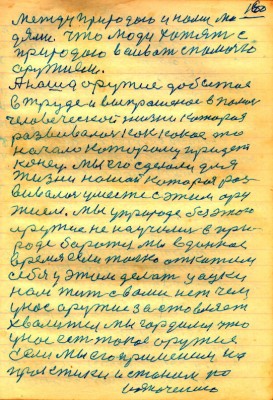 160
между природою и нами лю
дями. что люди хотят с
природою ваиват с помочю
оружием.
А наш оружие добытое
в труде и выпрашеное в
человеческой жизни которая
развивалас как какое то
начало которому придет
конец. мы его сделали для
жизни нашой которая раз
вивалас уместе с этим ору
жием. мы у природе без этого
оружие не научилис в при
роде боротся мы в данное
время если только откажим
себя у этом делат
нам жит с вами нет чем
у нас оружие заставляет
хвалится мы гордимся что
у нас ест такое оружие
если мы его применим на
практики и станим по